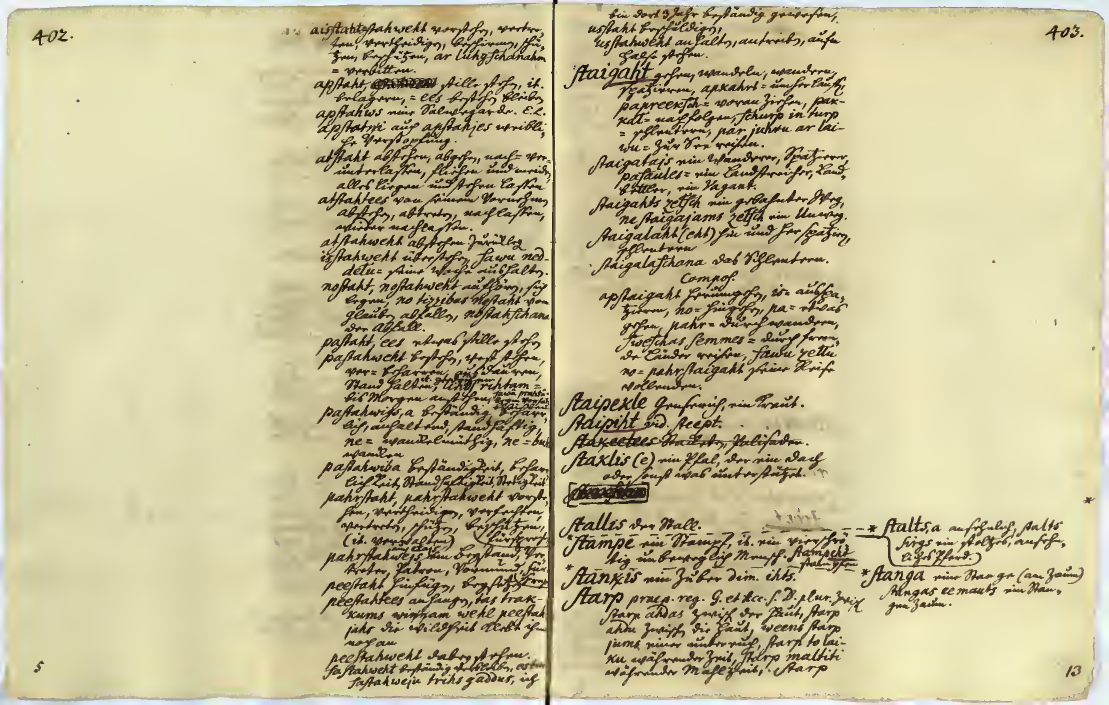 402.
aisstaht, stahweht vorstehen, vertre-
ten, vertheidigen, beschirmen, schü-
tzen, beschützen, ar luhgschanahm
= verbitten.
apstaht, stille stehen, it.
belagern, = ees bestehen bleiben
apstahws eine Salwegarde. E.L.
apstatni auch apstahjes weibli-
che Verstopfung.
atstaht abstehen, abgehen, nach= ver-
unterlassen, fliehen und meiden,
alles liegen und stehen lassen
atstahtees von seinem Vornehmen
abstehen, abtreten, nachlassen,
wieder nachlassen.
atstahweht abstehen zurück
isstahweht überstehen, sawu ned-
delu= seine Woche aushalten.
nostaht, nostahweht aufhören, sich
legen, no tizzibas nostaht vom
glauben abfallen, nostahschana
der Abfall.
pastaht, ees etwas stille stehen
pastahweht bestehen, vest stehen,
ver= beharren, ausdauren,
Stand halten, rihtam=
bis Morgen anstehen,
pastahwigs, a beständig, beharr-
lich, anhaltend, standhaftig,
ne= wandelmüthig, ne= buht
wanken
pastahwiba beständigkeit, behar-
lichkeit, Standhaftigkeit, Stetigkeit
pahrstaht, pahrstahweht vorste-
hen, vertheidigen, verfechten,
vertreten, schützen, beschützen,
(it. verwalten)
pahrstahweis ein beystand, Ver-
treter, Patron, Vormund, Für
peestaht hinfügen, beystehen
peestahtees anhangen, tas trak-
kums wiņņam wehl peestah
jahs die Wildheit klebt ihm
noch an
peestahweht dabey stehen.
sastahweht beständig verbleiben, es tur
sastahweju trihs gaddus, ich
5
403.
bin dort 3 Jahr beständig gewesen,
usstaht beschuldigen,
usstahweht anhalten, antreiben, aufm
Halse stehen.
staigaht gehen, wandeln, wandern,
spatzieren, apkahrt= umherlaufen,
papreeksch= voran ziehen, pak-
kal= nachfolgen, schurp in turp
= schlentern, par juhru ar lai-
wu= zur See reisen.
staigatajs ein Wanderer, Spatzierer,
pasaules= ein Landstreicher, Land-
bettler, ein Vagant.
staigahts zelsch ein gebahnter Weg,
ne staigajams zelsch ein Unweg.
staigalaht (eht) hin und her spatzieren,
schlentern
staigalaschana das Schlentern.
Compos.
apstaigaht herumgehen, is= auspa-
tzieren, no= hingehen, pa= etwas
gehen, pahr= durchwandern,
sweschas semmes= durch frem-
de Länder reisen, sawu zellu
no= pahrstaigaht seine Reise
vollenden.
staipekle Genserich, ein Kraut.
staipiht vid. steept.
staketees Staketen, Palisaden.
staklis (e) ein Pfal, der ein Dach
oder sonst was unterstützet.
stallis der Stall.
stampe ein Stampf, it. ein vierschrö-
tig unbeweglich Mensch. stampeht
stampfen
* stankis ein Züber dim. ihts.
starp praep. reg. G. et Acc. s. D. plur. zwisch
starp ahdas zwisch der Haut, starp
ahdu zwisch die Haut, weens starp
jums einer unter euch, starp to lai-
ku währender Zeit, starp maltiti
währender Mahlzeit, starp
*
* stalts, a ansehnlich, stalts
sirgs ein stoltzes, ansehn-
liches Pferd.
* stanga eine Stange (am Zaum)
stangas eemauts ein Stan-
gen Zaum.
13